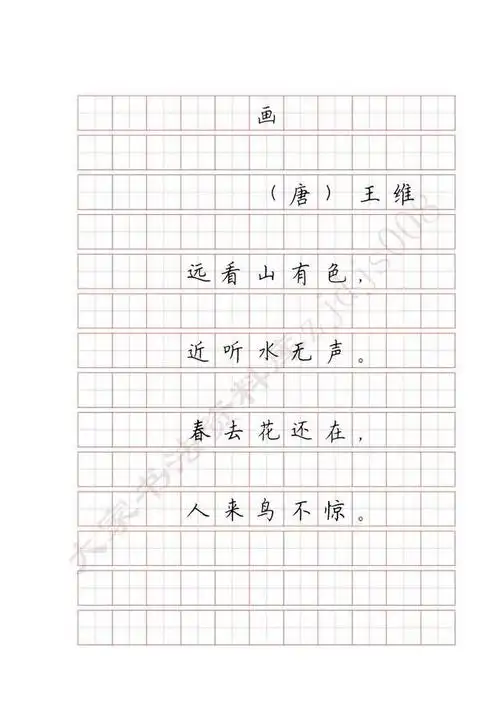 画
（唐）王维
远看山有色，
近听水无声。
春去花还在，
人来鸟不惊。